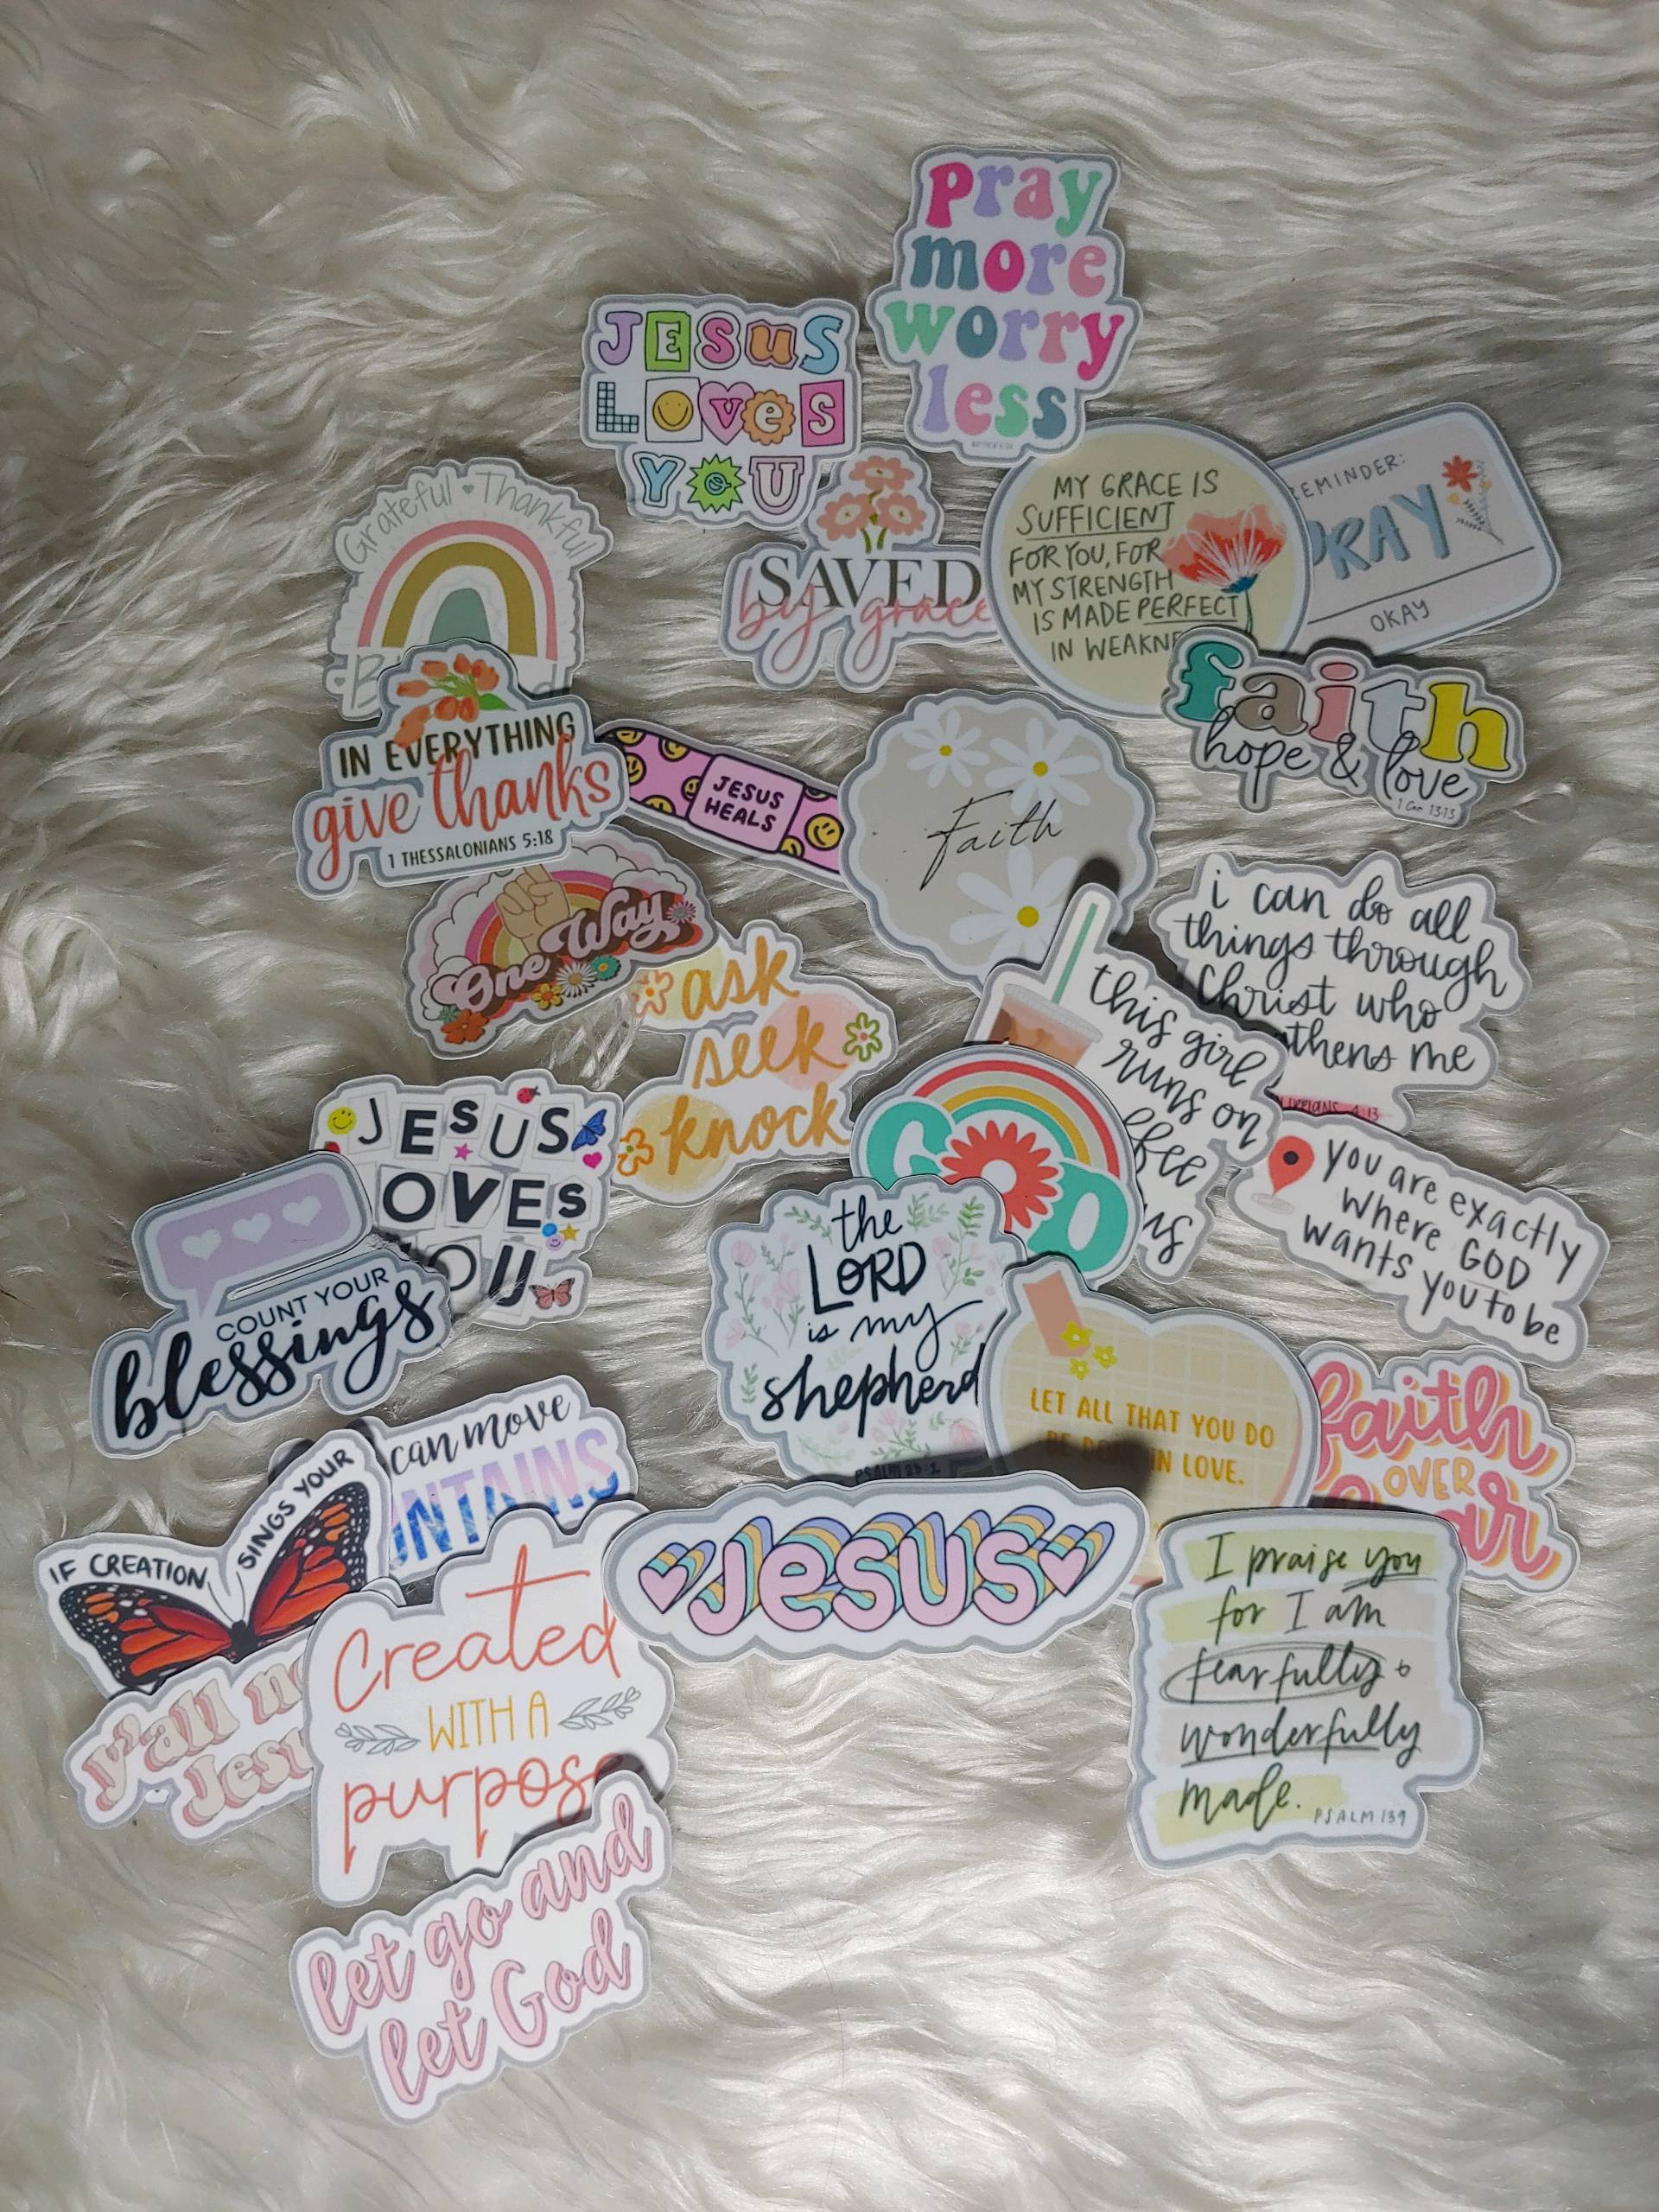 pray
more
worry
less
JESUS
LOVES
YOU
Grateful Thankful
SAVED
by grace
MY GRACE IS
SUFFICIENT
FOR YOU, FOR
MY STRENGTH
IS MADE PERFECT
IN WEAKNE
REMINDER:
PRAY
OKAY
faith
hope & love
1 Cor 13:13
IN EVERYTHING
give thanks
1 THESSALONIANS 5:18
JESUS
HEALS
Faith
One Way
ask
seek
knock
i can do all
things through
Christ who
thens me
4:13
this girl
runs on
ffee
us
JESUS
OVES
OU
GOD
you are exactly
where GOD
wants you to be
COUNT YOUR
blessings
the
LORD
is my
shepherd
PSALM 23:1
LET ALL THAT YOU DO
BE DONE IN LOVE.
faith
OVER
ar
can move
UNTAINS
IF CREATION SINGS YOUR
Jesus
I praise you
for I am
fearfully +
wonderfully
made.
PSALM 139
y'all n
Jesu
Created
WITH A
purpose
let go and
let God